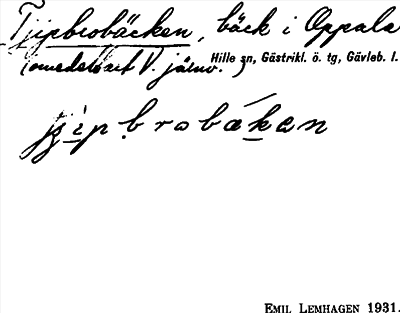 Tjipbrobäcken, bäck i Oppala
(omedelbart V. järnv.)
Hille sn, Gästrikl. ö. tg, Gävleb. l.
jipbrobäken
EMIL LEMHAGEN 1931.